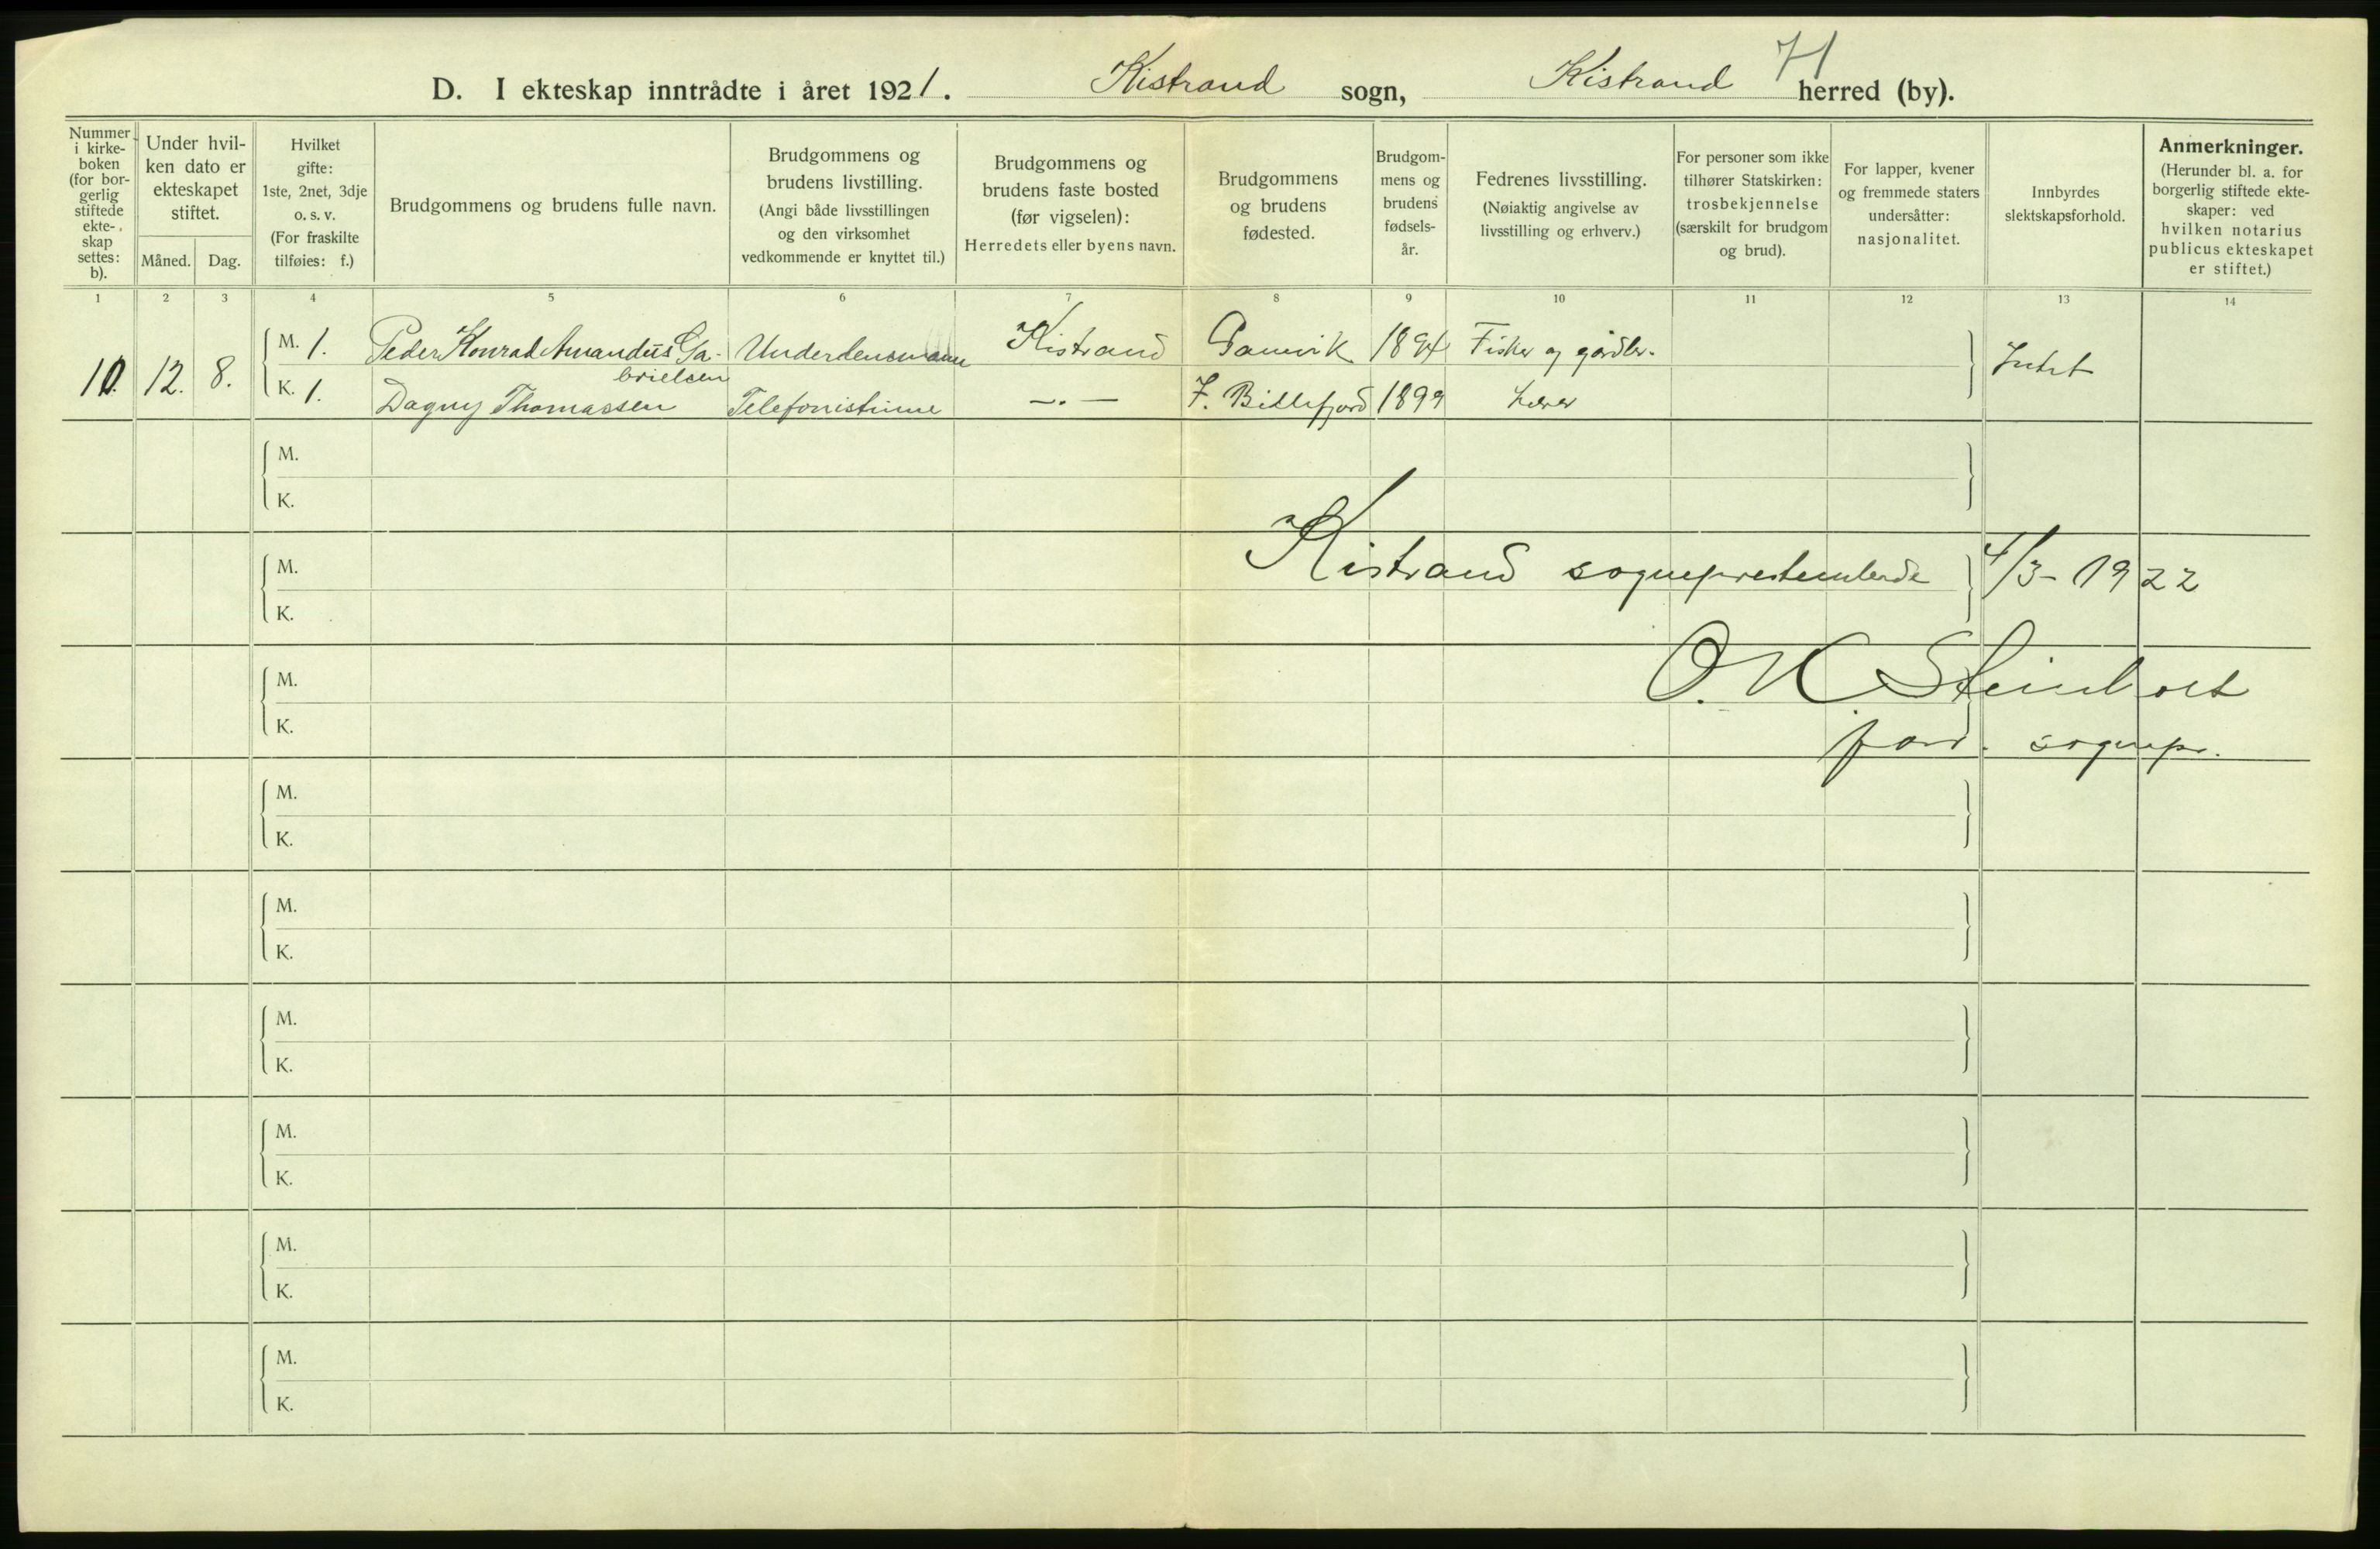 H
D. I ekteskap inntrådte i året 1921. Kistrand sogn, Kistrand herred (by).
Nummer i kirke-boken (for bor-gerlig stiftede ekte-skap settes: b).
Under hvil-ken dato er ekteskapet stiftet.
Måned. Dag.
Hvilket gifte: 1ste, 2net, 3dje o. s. v. (For fraskilte tilføies: f.)
Brudgommens og brudens fulle navn.
Brudgommens og brudens livstilling. (Angi både livsstillingen og den virksomhet vedkommende er knyttet til.)
Brudgommens og brudens faste bosted (før vigselen): Herredets eller byens navn.
Brudgommens og brudens fødested.
Brudgom-mens og brudens fødsels-år.
Fedrenes livsstilling. (Nøiaktig angivelse av livsstilling og erhverv.)
For personer som ikke tilhører Statskirken: trosbekjennelse (særskilt for brudgom og brud).
For lapper, kvener og fremmede staters undersåtter: nasjonalitet.
Innbyrdes slektskapsforhold.
Anmerkninger. (Herunder bl. a. for borgerlig stiftede ekte-skaper: ved hvilken notarius publicus ekteskapet er stiftet.)
1 2 3 4 5 6 7 8 9 10 11 12 13 14
10. 12. 8. M. 1. Peder Konrad Amandus Ga-brielsen Underlensmann Kistrand Gamvik 1894 Fisker og gårdbr. Intet
K. 1. Dagny Thomassen Telefonistinne —〃— I. Billefjord 1899 Lærer
M.
K.
M.
K.
Kistrand sogneprestembede 4/3-1922
M.
K.
O. K. Steinholt
fors. sognepr.
M.
K.
M.
K.
M.
K.
M.
K.
M.
K.
M.
K.